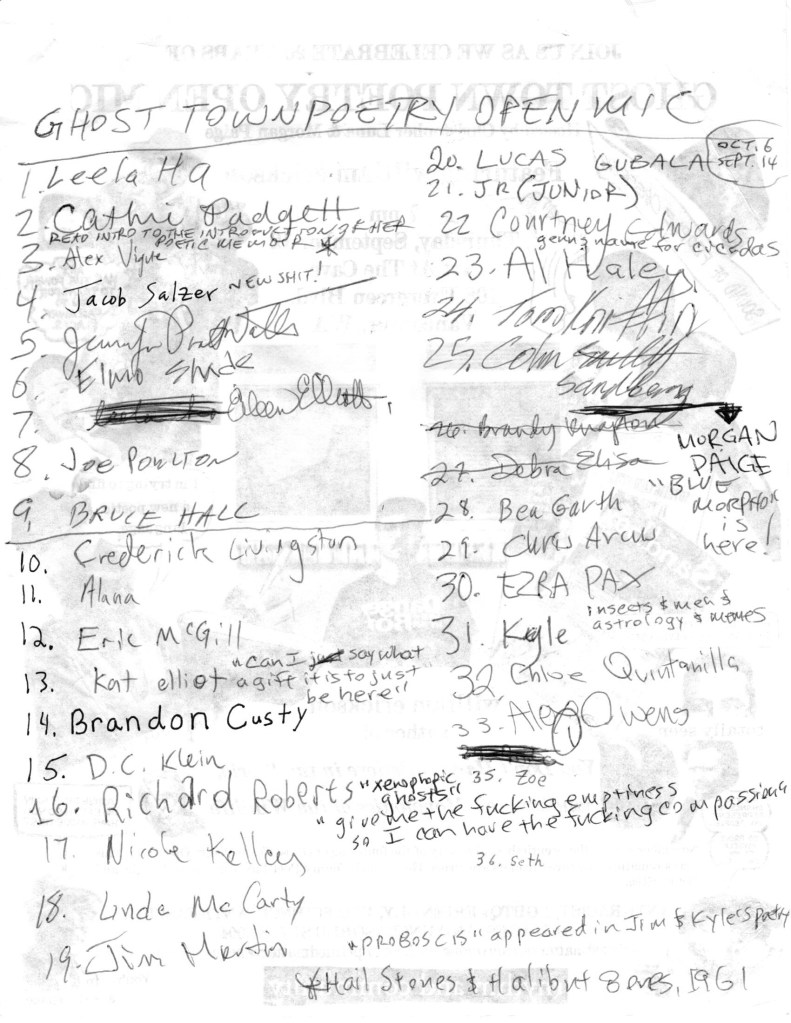 GHOST TOWN POETRY OPEN MIC
1. Leela Ha
2. Cathi Padgett
READ INTRO TO THE INTRODUCTION OF HER
POETIC MEMOIR *
3. Alex Vigue
4. Jacob Salzer NEW SHIT!
5. Jennifer Pratt Walls
6. Elmo Shade
7. Eileen Elliott
8. Joe Poulton
9. BRUCE HALL
10. Frederick Livingston
11. Alana
12. Eric McGill
13. Kat elliot "can I just say what
a gift it is to just
be here"
14. Brandon Custy
15. D.C. Klein
16. Richard Roberts "xenophobic
ghosts"
"give me the fucking emptiness
so I can have the fucking compassion"
17. Nicole Kelley
18. Linda McCarty
19. Jim Martin
20. LUCAS GUBALA OCT. 6
SEPT. 14
21. JR (JUNIOR)
22 Courtney Edwards
genus name for cicadas
23. Al Haley
24. Tom
25. Colin
Sandberg
26. Brandy
27. Debra Elisa
MORGAN
PAIGE
"BLUE
MORPHO"
is
here!
28. Bea Garth
29. Chris
30. EZRA PAX
insects & men &
astrology & memes
31. Kyle
32. Chloe Quintanilla
33. Alex Owens
35. Zoe
36. Seth
"PROBOSCIS" appeared in Jim & Kyle's poetry
*Hail Stones & Halibut Bones, 1961